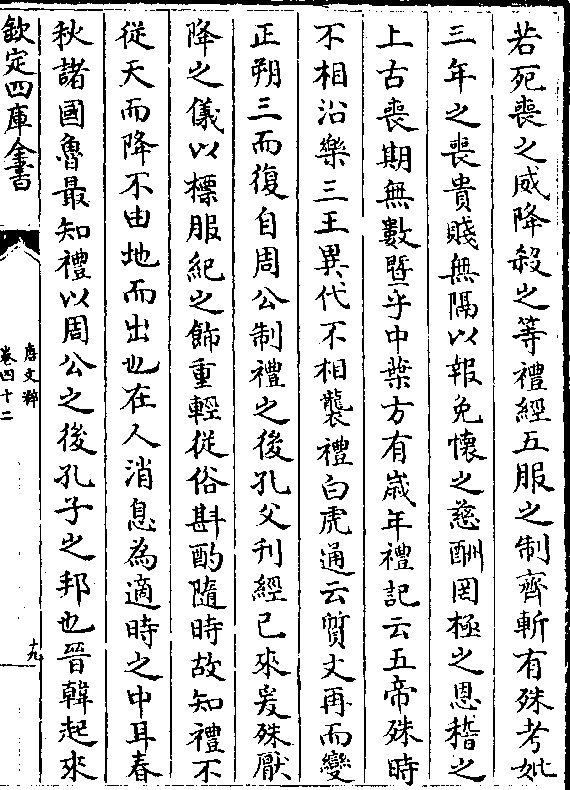 若死喪之威降殺之等禮經五服之制齊斬有殊考妣
三年之喪貴賤無隔以報免懷之慈酬罔極之恩稽之
上古喪期無數曁乎中葉方有嵗年禮記云五帝殊時
不相沿樂三王異代不相襲禮白虎通云質文再而變
正朔三而復自周公制禮之後孔父刋經已來爰殊厭
降之儀以標服紀之飾重輕從俗斟酌隨時故知禮不
從天而降不由地而出也在人消息為適時之中耳春
秋諸國魯最知禮以周公之後孔子之邦也晉韓起來
欽定四庫全書
唐文粹
卷四十二
十九